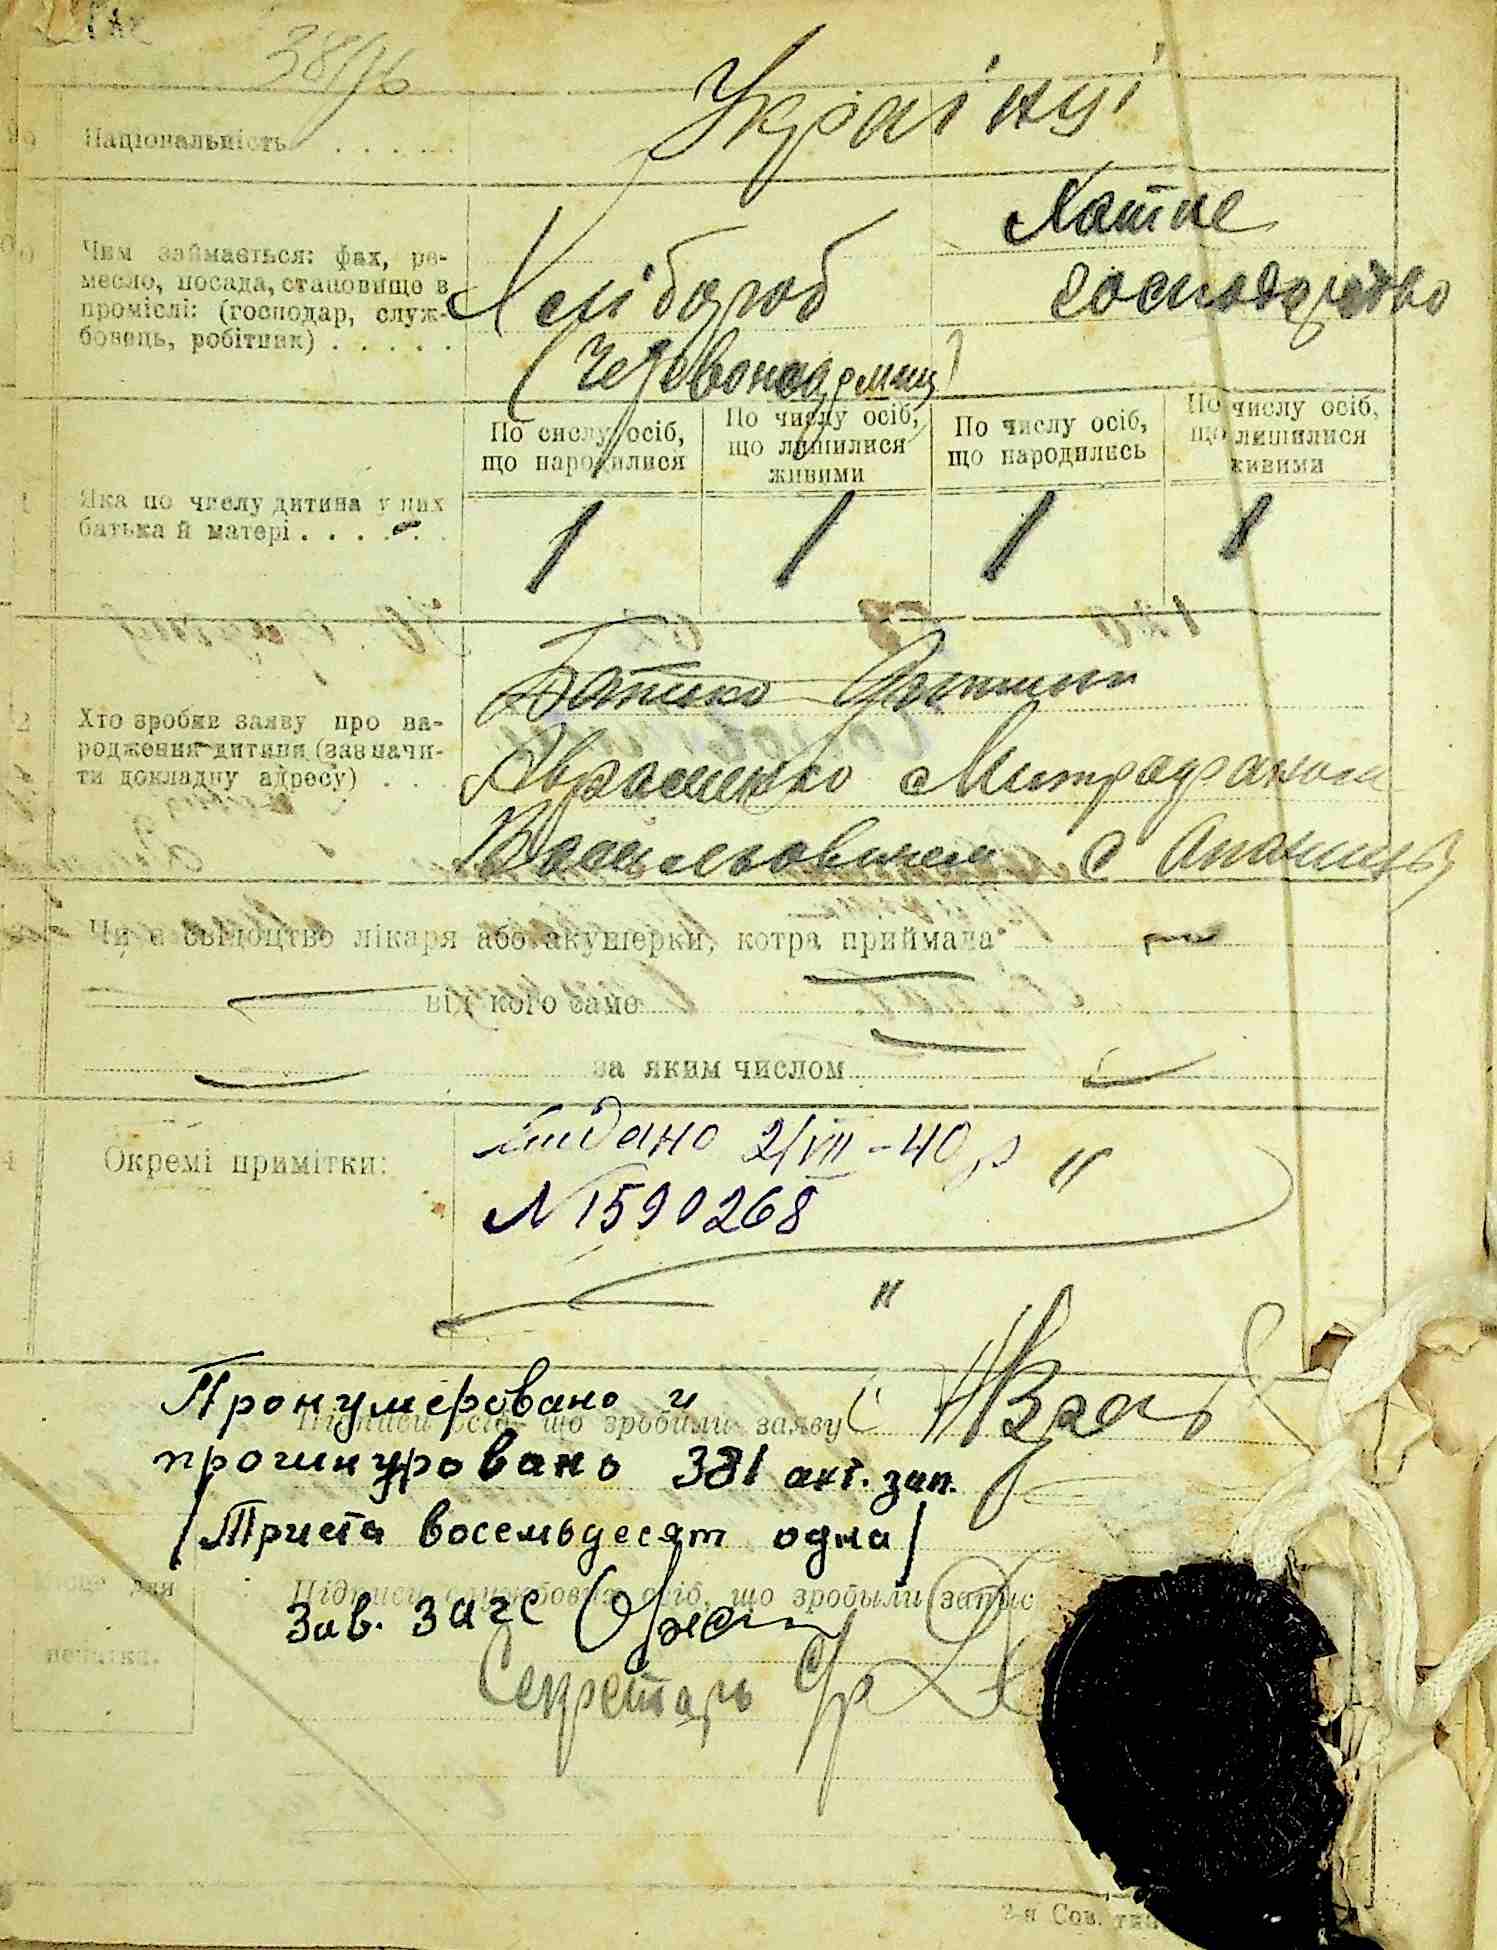 Національність
Українці
Чим займається: фах, ре-
месло, посада, становище в
проміслі: (господар, служ-
бовець, робітник)
Хлібороб
(Червоноармиц)
Хатнє
господарство
По сислу осіб,
що народилися
По числу осіб,
що лишилися
живими
По числу осіб,
що народились
По числу осіб,
що лишилися
живими
Яка по числу дитина у них
батька й матері
1 1 1 1
Хто зробив заяву про на-
родження дитини (зазначи-
ти докладну адресу)
Батько дитини
Авраменко Митрофаном
Васильовичем с
Чи є свідоцтво лікаря або акушерки, котра приймала
від кого саме
за яким числом
Окремі примітки:
Видано 2/VII-40р
N 1590268
Підписи осіб, що зробили заяву
Пронумеровано и
прошнуровано 381 акт. зап.
/Триста восемьдесят одна/
Підписи службових осіб, що зробыли запис
Зав. загс
Секретарь
Місце для
печатки.
2-я Сов.